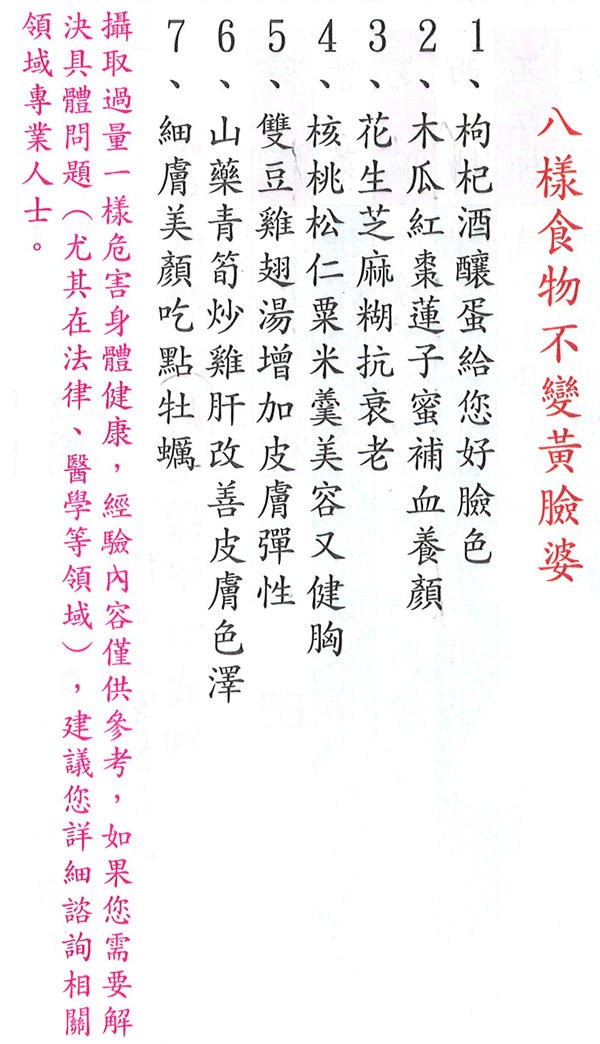 八樣食物不變黃臉婆
1、枸杞酒釀蛋給您好臉色
2、木瓜紅棗蓮子蜜補血養顏
3、花生芝麻糊抗衰老
4、核桃松仁粟米羹美容又健胸
5、雙豆雞翅湯增加皮膚彈性
6、山藥青筍炒雞肝改善皮膚色澤
7、細膚美顏吃點牡蠣
攝取過量一樣危害身體健康，經驗內容僅供參考，如果您需要解
決具體問題（尤其在法律、醫學等領域），建議您詳細諮詢相關
領域專業人士。